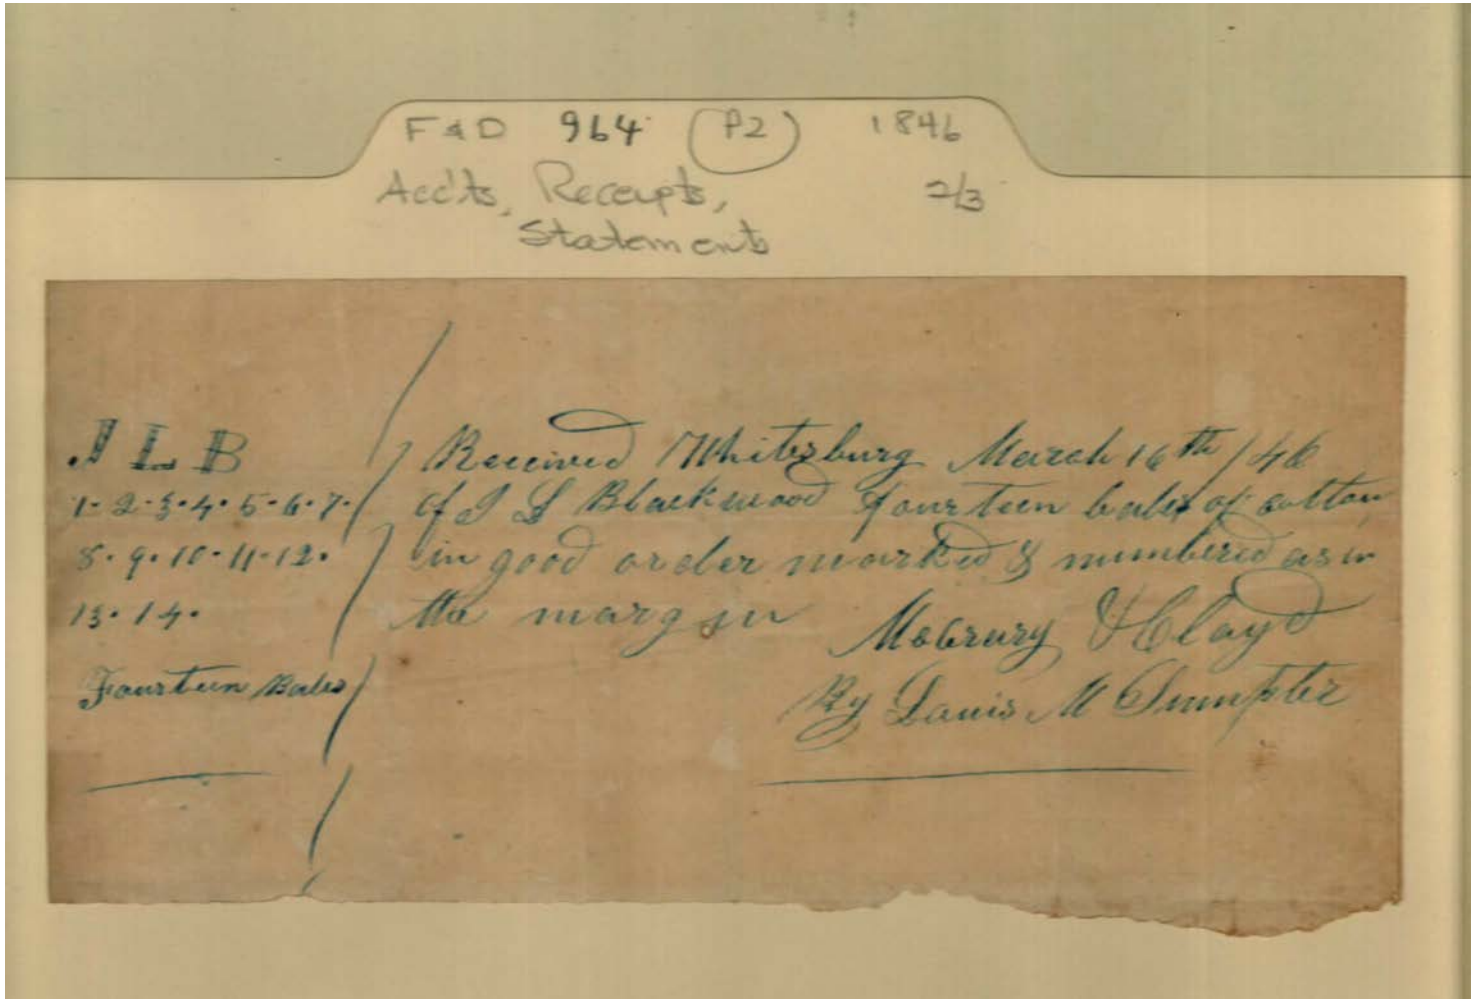 F & D 964 (P2) 1846
Acc'ts, Receipts, 2/3
Statements
J L B
1-2-3-4-5-6-7-
8-9-10-11-12-
13-14-
Fourteen Bales
Received Whitesburg March 16th /46
of J L Blackwood fourteen bales of cotton
in good order marked & numbered as in
the margin
& Clayd
By Louis M Sumpter